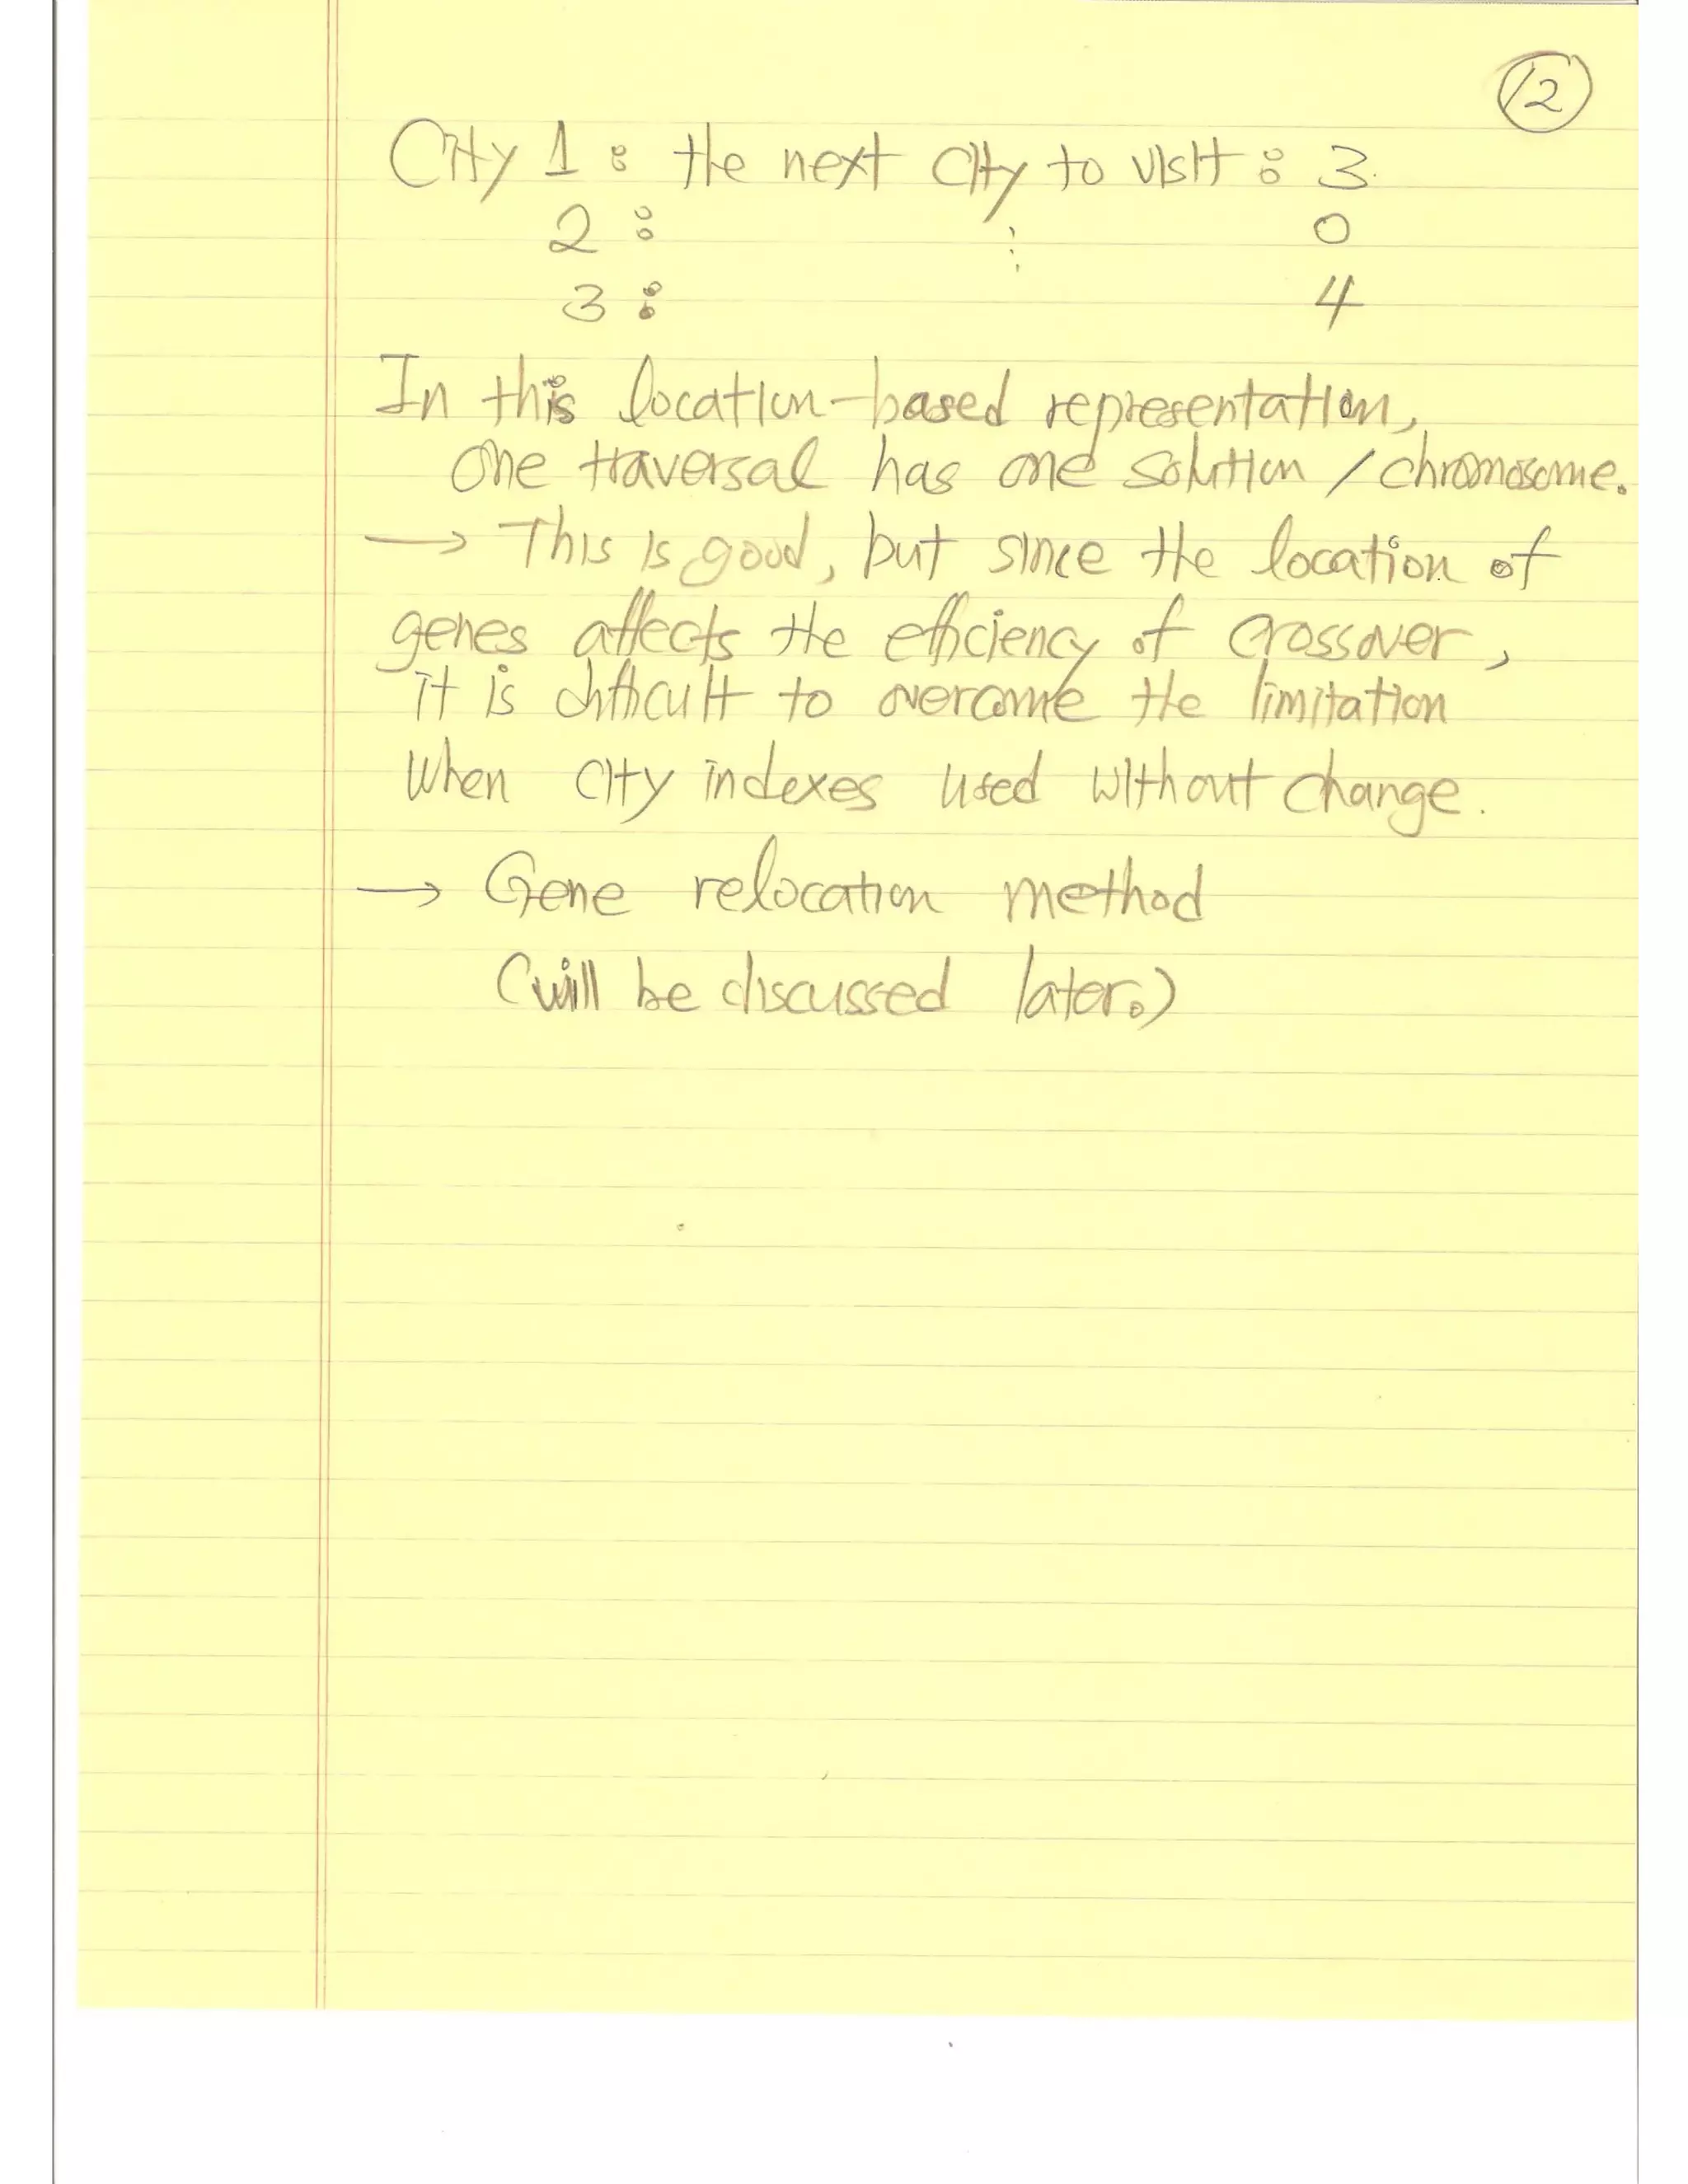 12
City 1 : the next city to visit : 3
2 : ⋮ 0
3 : 4
In this location-based representation,
one traversal has one solution / chromosome.
→ This is good, but since the location of
genes affects the efficiency of crossover,
it is difficult to overcome the limitation
when city indexes used without change.
→ Gene relocation method
(will be discussed later.)